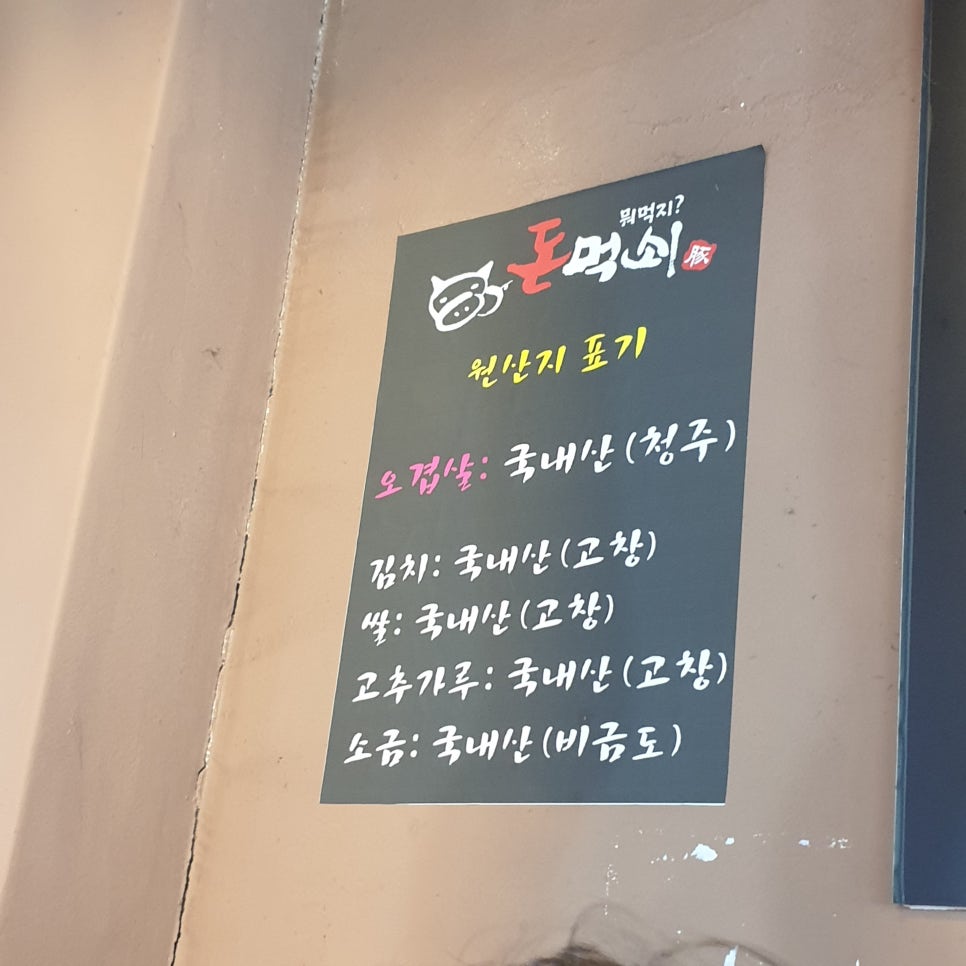 뭐먹지?
돈먹쇠 豚
원산지 표기
오겹살: 국내산(청주)
김치: 국내산(고창)
쌀: 국내산(고창)
고추가루: 국내산(고창)
소금: 국내산(비금도)